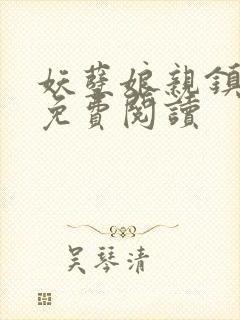 妖孽娘親鎮
免費閱讀
吳琴清